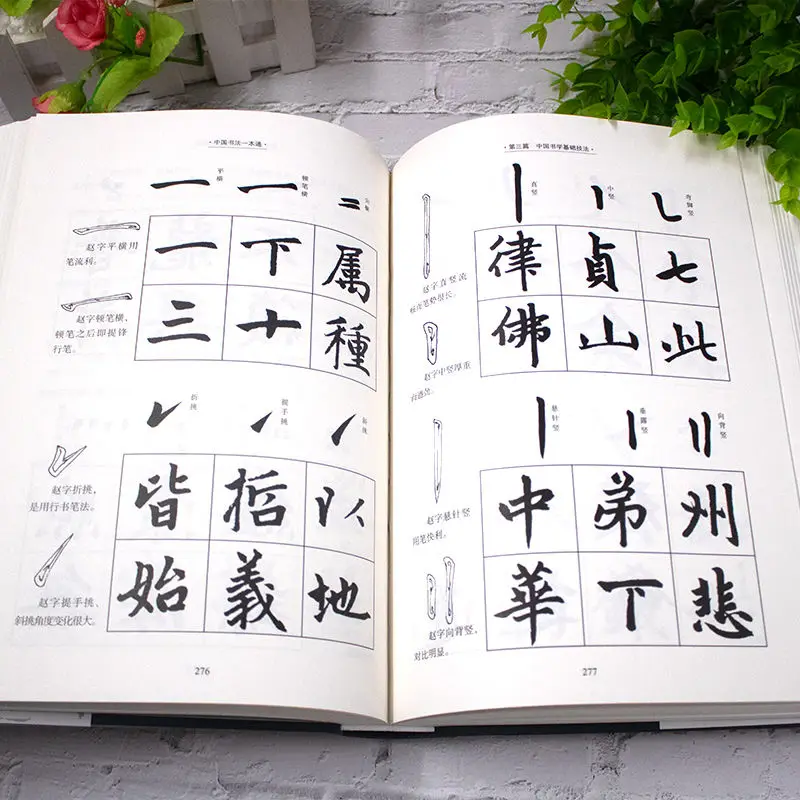 ·中国书法一本通·
平横
顿笔横
赵字平横用
笔流利。
赵字顿笔横,
顿笔之后即提锋
行笔。
一 下 属
三 十 種
折挑
提手挑
斜挑
赵字折挑,
是用行书笔法。
赵字提手挑、
斜挑角度变化很大。
皆 哲 以
始 義 地
276
·第三篇 中国书学基础技法·
直竖
中竖
弯胸竖
赵字直竖流
赵字中竖厚重
律 貞 七
佛 山 此
悬针竖
垂露竖
向背竖
赵字悬针竖
用笔快利。
赵字向背竖,
对比明显。
中 弟 州
華 下 悲
277